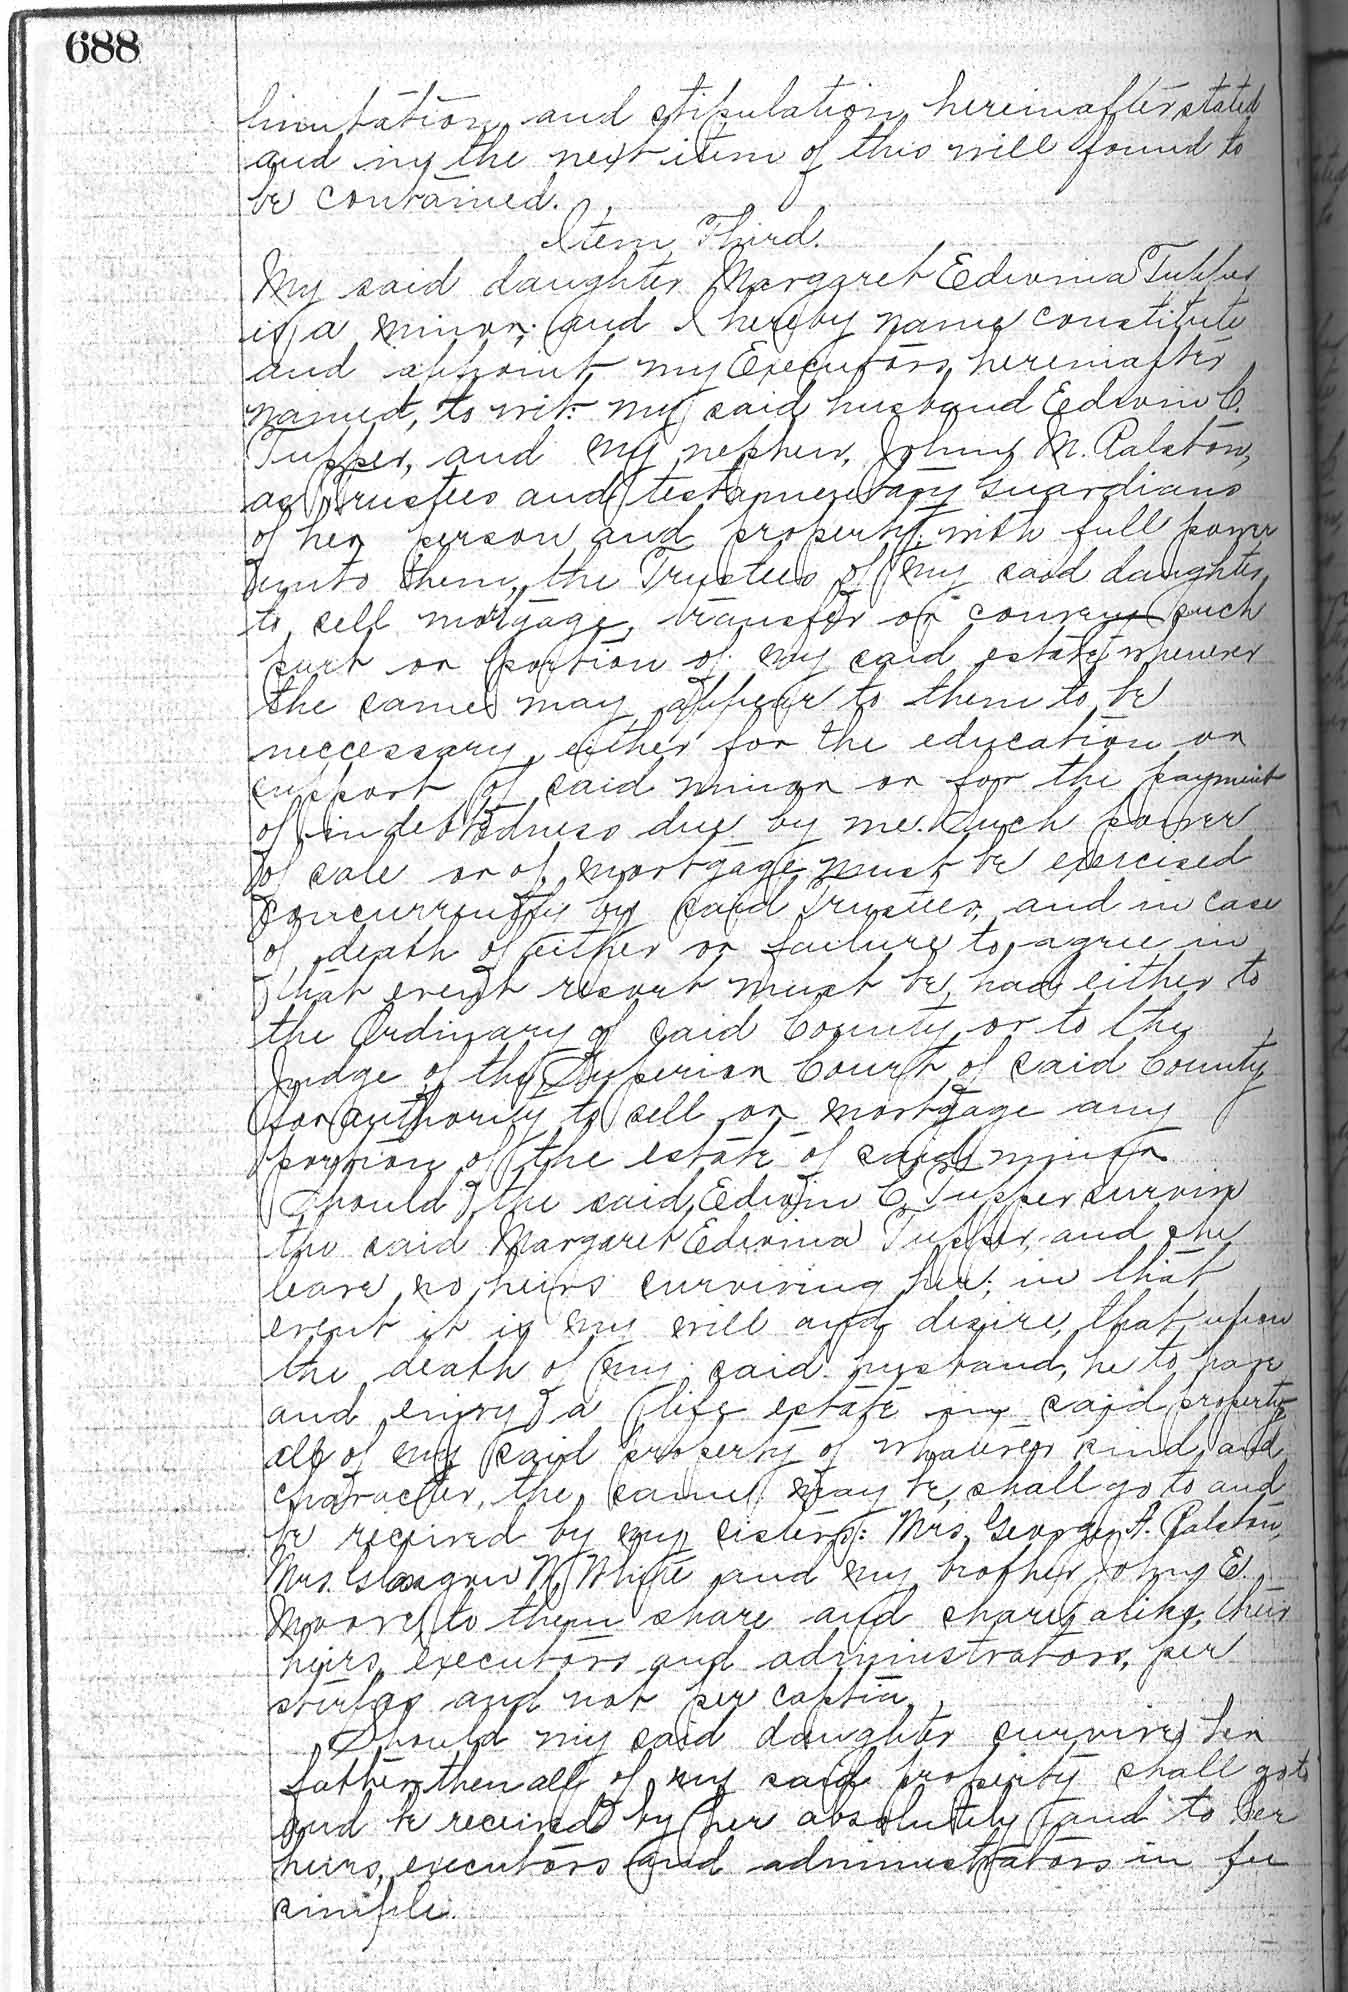 688
limitation and stipulation hereinafter stated
and in the next item of this will found to
be contained.
Item Third.
My said daughter Margaret Edwina Tupper
is a minor; and I hereby name constitute
and appoint my Executors hereinafter
named, to wit: my said husband Edwin C.
Tupper, and my nephew, John M. Ralston,
as Trustees and testamentary Guardians
of her person and property; with full power
unto them, the Trustees of my said daughter,
to sell mortgage, transfer or convey such
part or portion of my said estate whenever
the same may appear to them to be
neccessary, either for the education or
support of said minor or for the payment
of indebtedness due by me. Such power
of sale or of mortgage must be exercised
concurrently by said Trustees, and in case
of death of either or failure to agree in
that event resort must be had either to
the Ordinary of said County or to the
Judge of the Superior Court of said County
for authority to sell or mortgage any
portion of the estate of said minor
Should the said Edwin C. Tupper survive
the said Margaret Edwina Tupper, and she
leave no heirs surviving her; in that
event it is my will and desire, that upon
the death of my said husband, he to have
and enjoy a life estate in said property
all of my said property of whatever kind and
character, the same may be, shall go to and
be received by my sisters: Mrs. George A. Ralston,
Mrs. W. White and my brother John E.
Moore, to them share and share alike, their
heirs, executors and administrators, per
stirpes and not per captia.
Should my said daughter survive her
father, then all of my said property shall go to
and be received by her absolutely and to her
heirs, executors and administrators in fee
simple.